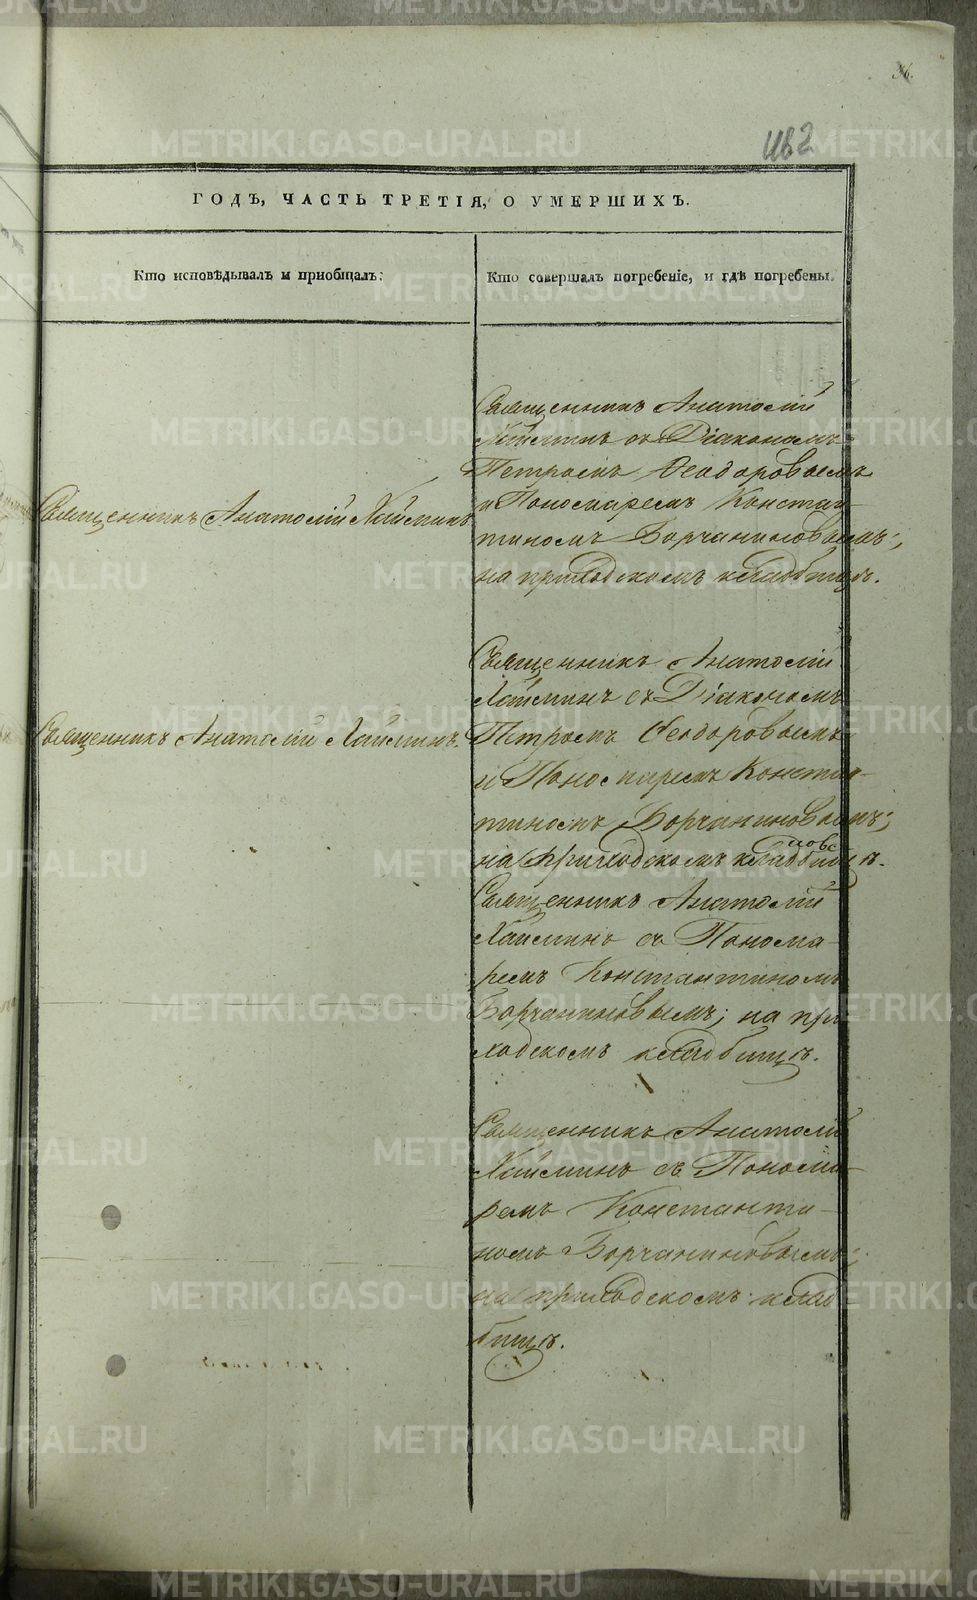 36.
482
ГОДЪ, ЧАСТЬ ТРЕТІЯ, О УМЕРШИХЪ.
Кто исповѣдывалъ и пріобщалъ:
Кто совершалъ погребеніе, и гдѣ погребены.
Священникъ Анатолій Хаймин
Священникъ Анатолій
Хайминъ съ Діакономъ
Петромъ Ѳеодоровымъ
и Пономаремъ Констан-
тиномъ Борчаниновымъ;
на приходскомъ кладбищѣ.
Священникъ Анатолій Хайминъ.
Священникъ Анатолій
Хайминъ съ Діакономъ
Петромъ Ѳеодоровымъ
и Пономаремъ Констан-
тиномъ Борчаниновымъ;
на приходскомъ кладбищѣ.
Священникъ Анатолій
Хайминъ съ Понома-
ремъ Константиномъ
Борчаниновымъ; на при
ходскомъ кладбищѣ.
Священникъ Анатолій
Хайминъ съ Понома-
ремъ Константи-
номъ Борчаниновымъ;
на приходскомъ клад
бищѣ.
METRIKI.GASO-URAL.RU